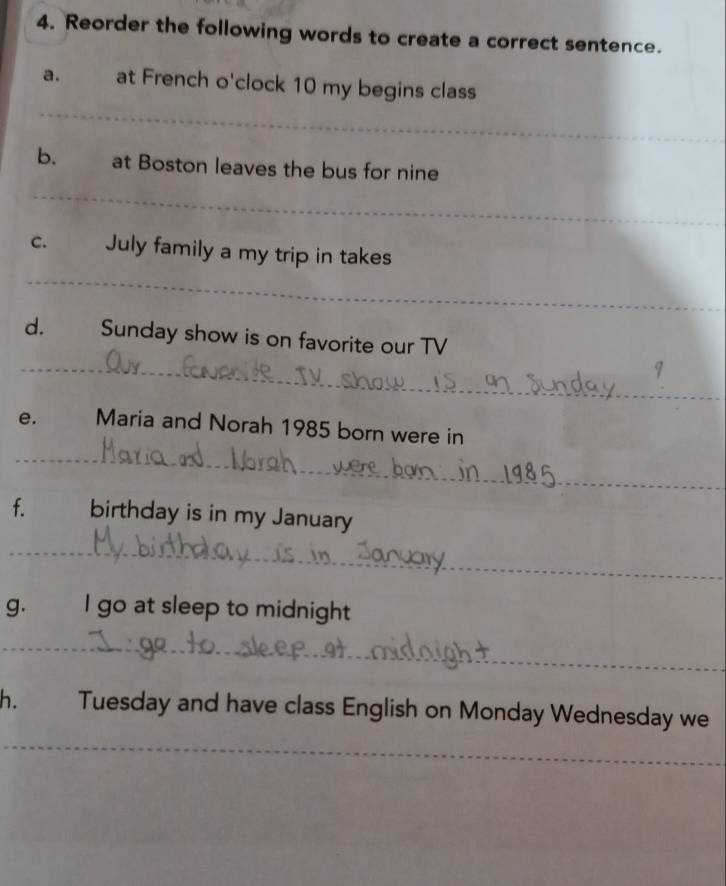 4. Reorder the following words to create a correct sentence.
a. at French o'clock 10 my begins class
b. at Boston leaves the bus for nine
c. July family a my trip in takes
d. Sunday show is on favorite our TV
Our favorite TV show is on Sunday ?
e. Maria and Norah 1985 born were in
Maria and Norah were born in 1985
f. birthday is in my January
My birthday is in January
g. I go at sleep to midnight
I go to sleep at midnight
h. Tuesday and have class English on Monday Wednesday we